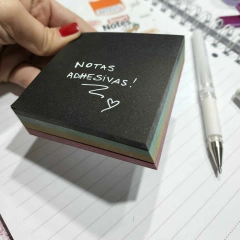 NOTAS
ADHESIVAS!